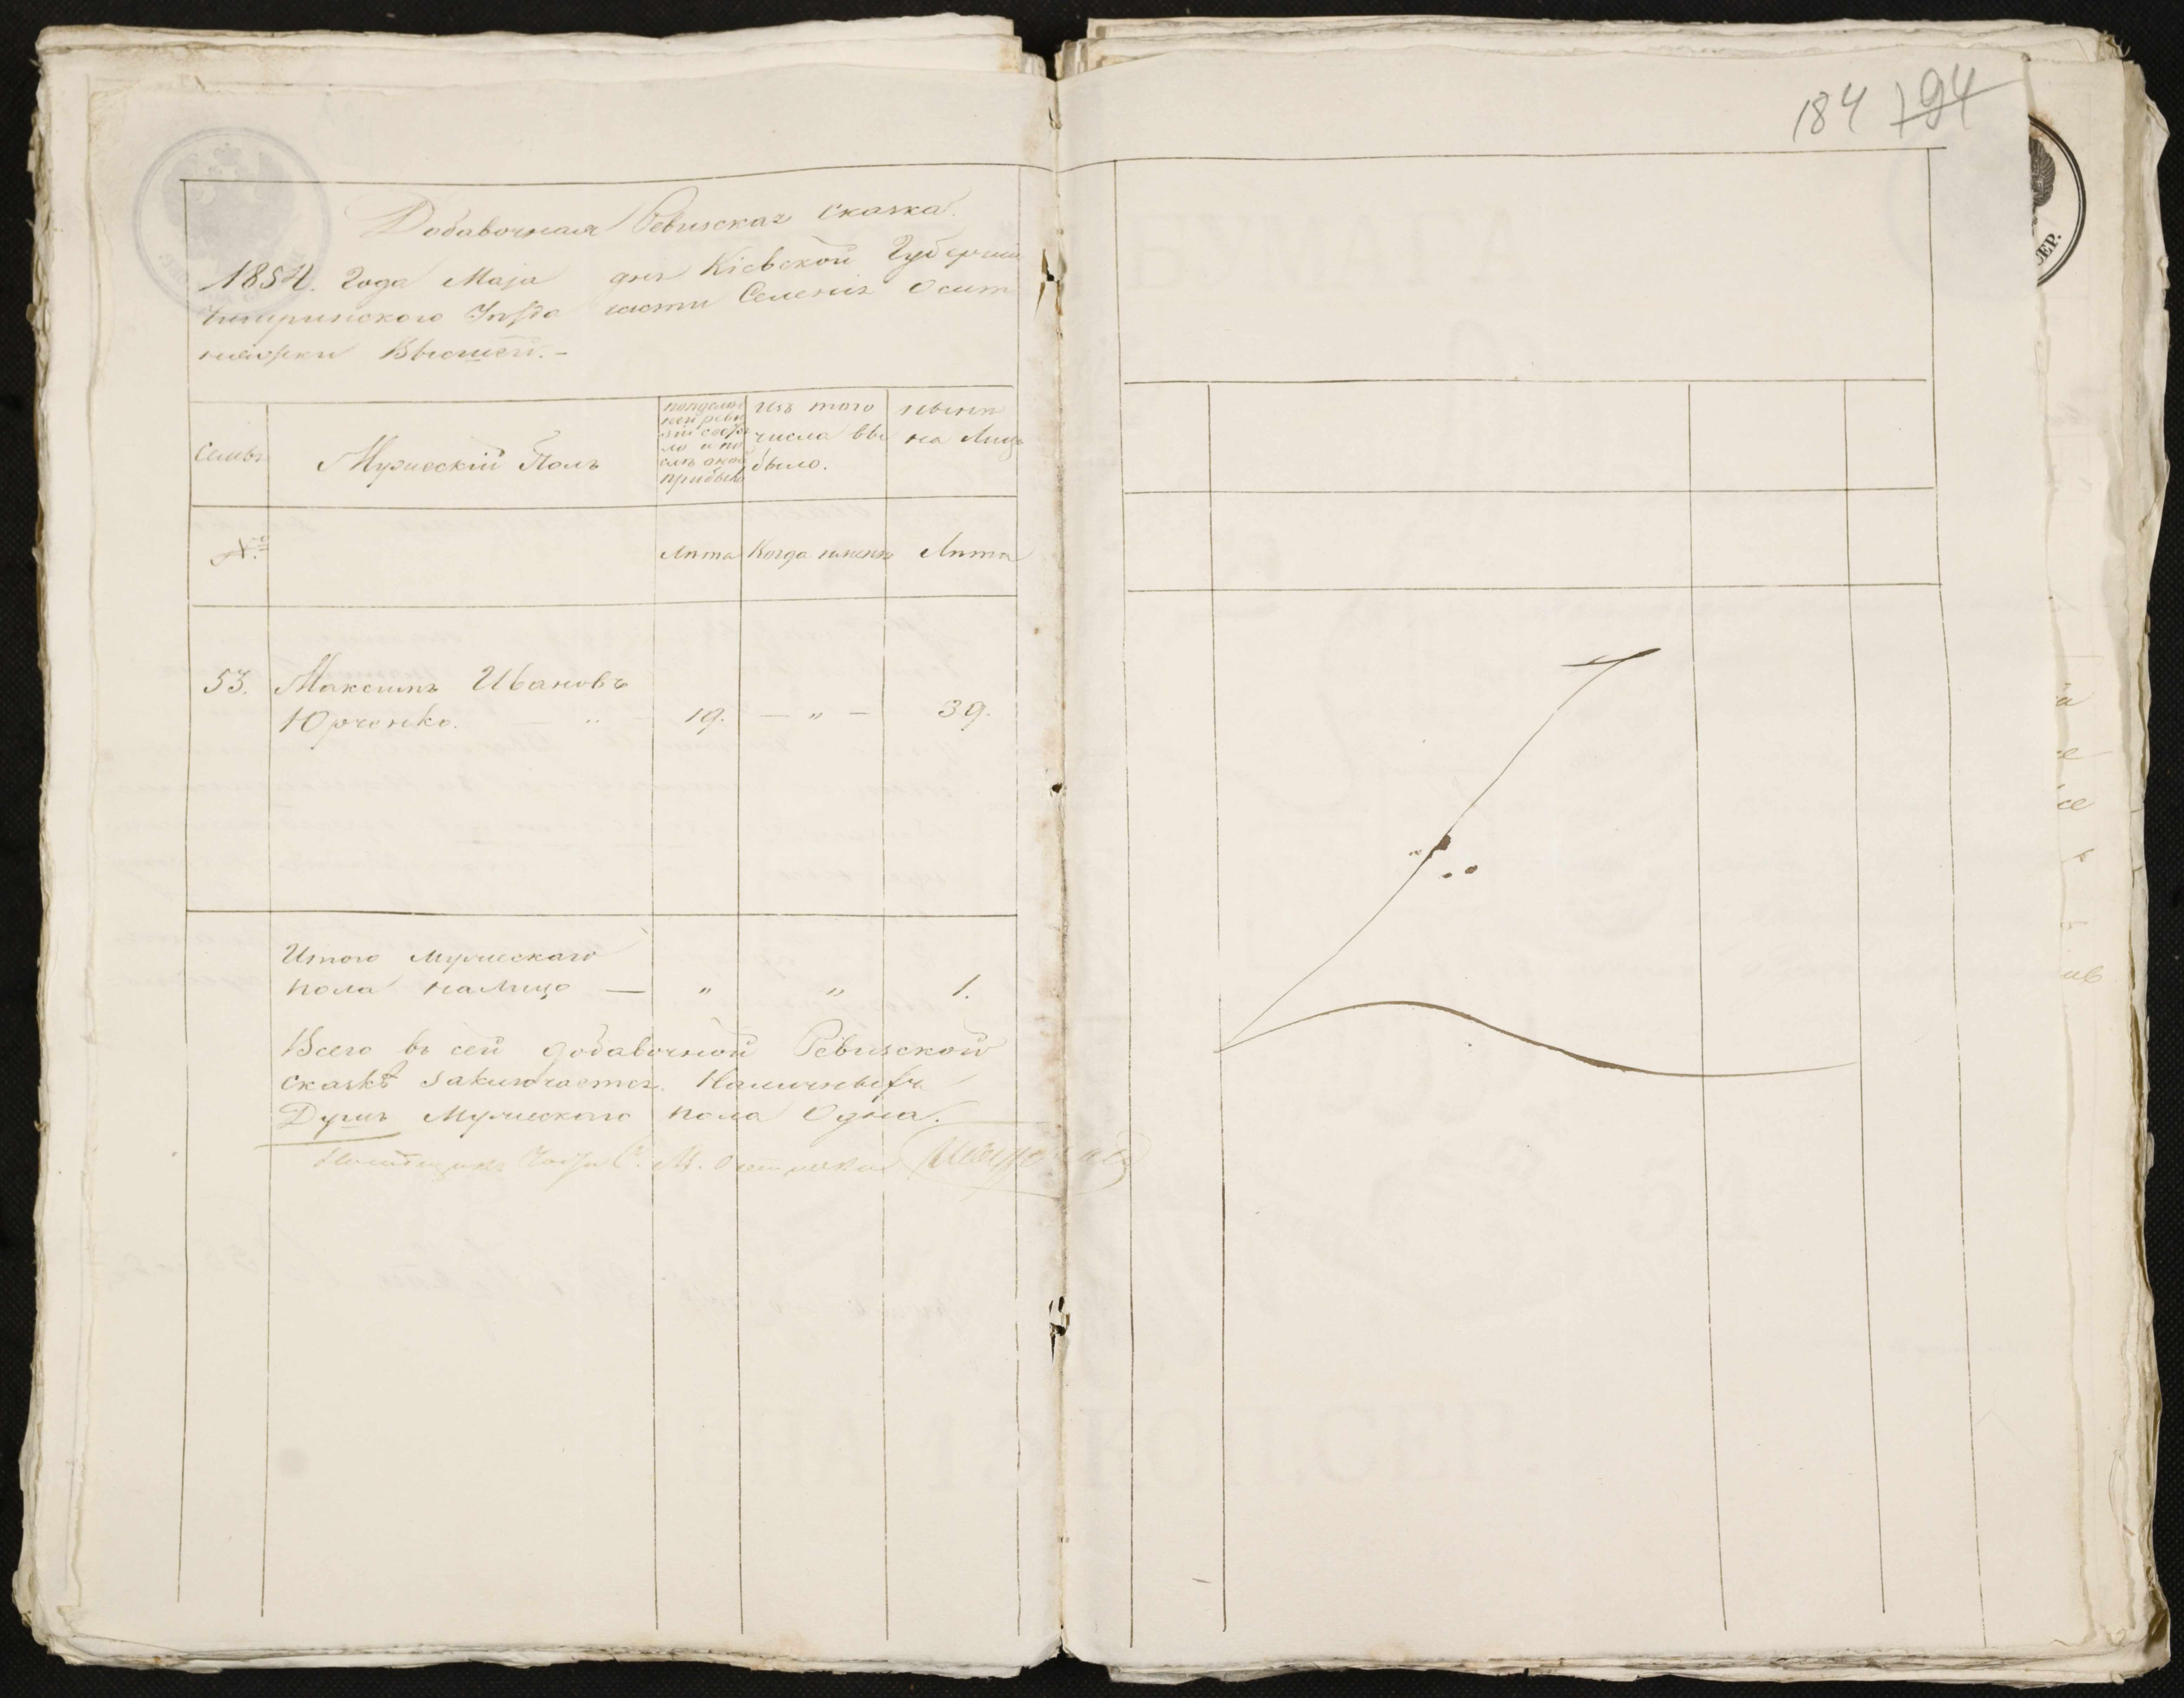 184 194
Добавочная Ревиская сказка.
1854. Года Маія дня Кіевской Губерніи
Чигиринского Уѣзда части Селенія Осит
няжки Высшей.-
Семьи
Мужескій Полъ
изъ того
числа вы
было.
нынѣ
на Лицо
№
Лѣта
Когда именно
Лѣта
53. Максимъ Ивановъ
Юрченко. — " — 19. — " — 39.
Итого мужескаго
пола налицо — " " 1.
Всего въ сей добавочной Ревиской
сказкѣ заключается Наличныхъ
Душъ Мужескаго пола Одна.
JЕР.